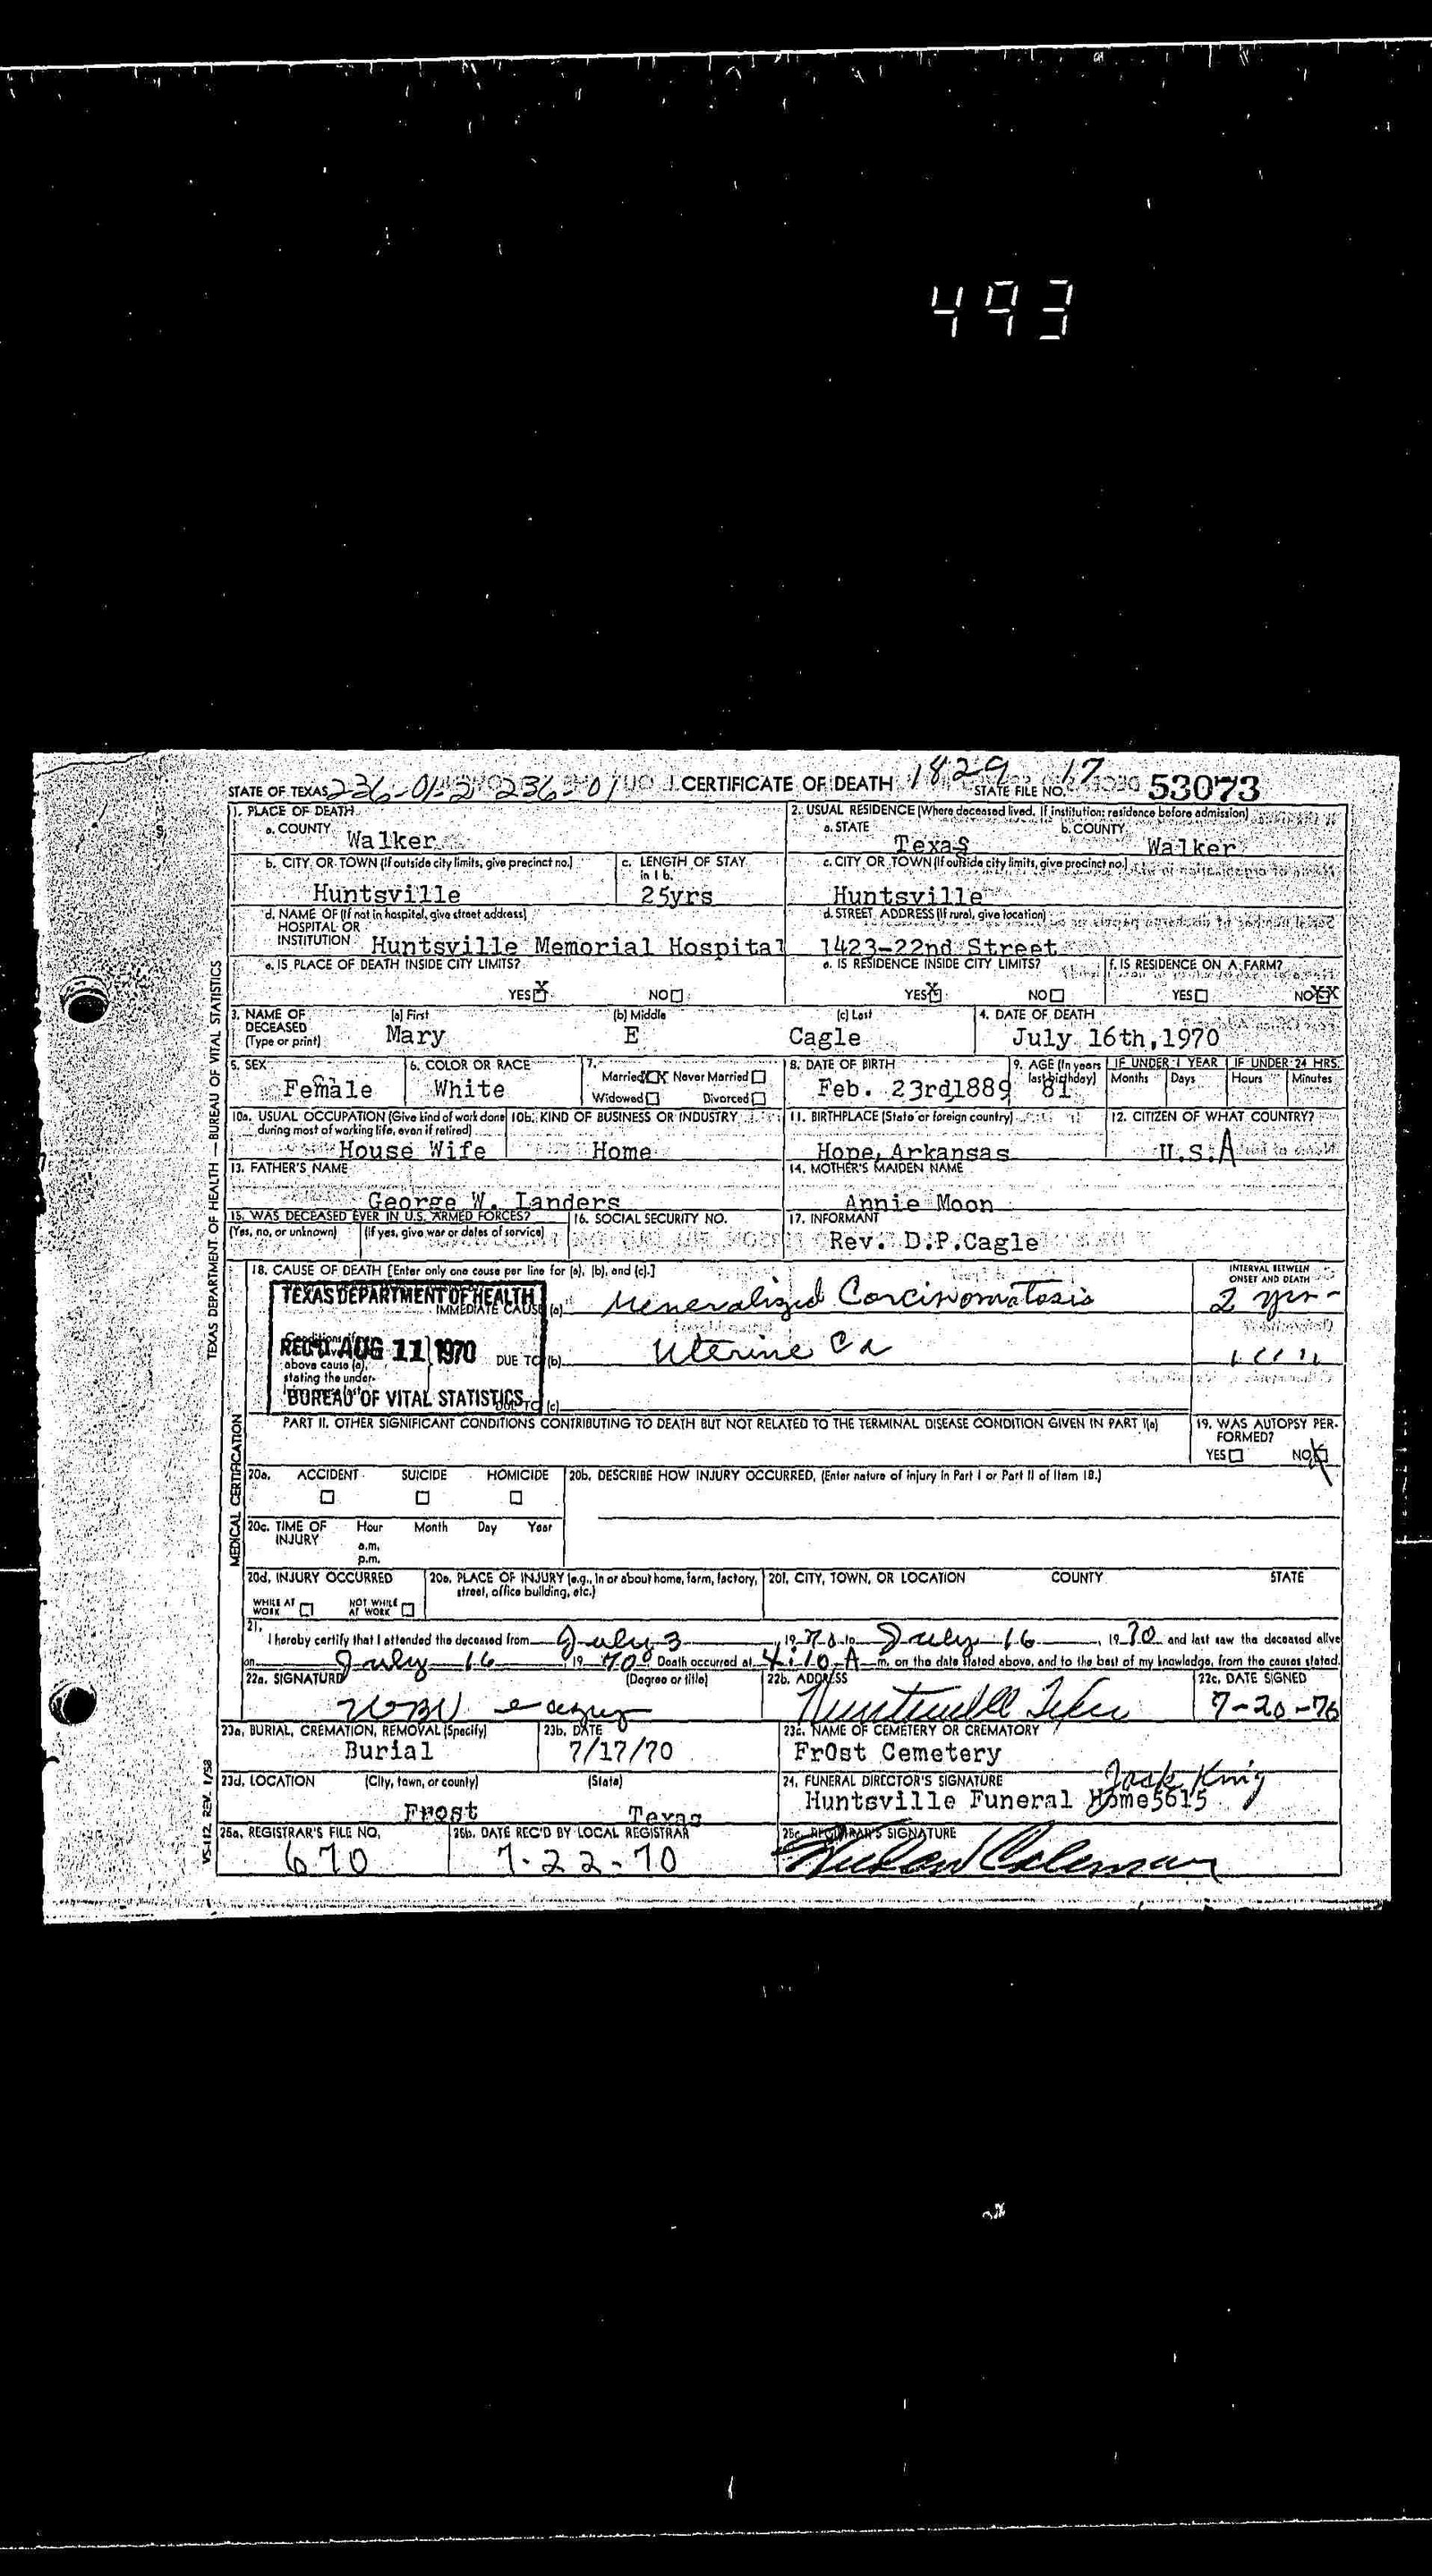 493
STATE OF TEXAS 236-01-2 236-01 CERTIFICATE OF DEATH 1829 17 STATE FILE NO. 53073
1. PLACE OF DEATH
a. COUNTY Walker
2. USUAL RESIDENCE (Where deceased lived. If institution: residence before admission)
a. STATE Texas b. COUNTY Walker
b. CITY OR TOWN (If outside city limits, give precinct no.) Huntsville
c. LENGTH OF STAY in 1b. 25yrs
c. CITY OR TOWN (If outside city limits, give precinct no.) Huntsville
d. NAME OF (If not in hospital, give street address) HOSPITAL OR INSTITUTION Huntsville Memorial Hospital
d. STREET ADDRESS (If rural, give location) 1423-22nd Street
e. IS PLACE OF DEATH INSIDE CITY LIMITS? YES X NO
e. IS RESIDENCE INSIDE CITY LIMITS? YES X NO
f. IS RESIDENCE ON A FARM? YES NO XX
3. NAME OF DECEASED (Type or print) (a) First Mary (b) Middle E (c) Last Cagle
4. DATE OF DEATH July 16th,1970
5. SEX Female
6. COLOR OR RACE White
7. Married XX Never Married Widowed Divorced
8. DATE OF BIRTH Feb. 23rd1889
9. AGE (In years last birthday) 81
IF UNDER 1 YEAR Months Days
IF UNDER 24 HRS. Hours Minutes
10a. USUAL OCCUPATION (Give kind of work done during most of working life, even if retired) House Wife
10b. KIND OF BUSINESS OR INDUSTRY Home
11. BIRTHPLACE (State or foreign country) Hope, Arkansas
12. CITIZEN OF WHAT COUNTRY? U.S.A
13. FATHER'S NAME George W. Landers
14. MOTHER'S MAIDEN NAME Annie Moon
15. WAS DECEASED EVER IN U.S. ARMED FORCES? (Yes, no, or unknown) (If yes, give war or dates of service)
16. SOCIAL SECURITY NO.
17. INFORMANT Rev. D.P.Cagle
TEXAS DEPARTMENT OF HEALTH — BUREAU OF VITAL STATISTICS
MEDICAL CERTIFICATION
18. CAUSE OF DEATH [Enter only one cause per line for (a), (b), and (c).]
INTERVAL BETWEEN ONSET AND DEATH
TEXAS DEPARTMENT OF HEALTH
REC'D AUG 11 1970
BUREAU OF VITAL STATISTICS
IMMEDIATE CAUSE (a) Generalized Carcinomatosis 2 yrs
above cause (a), stating the under-
DUE TO (b) Uterine Ca " "
DUE TO (c)
PART II. OTHER SIGNIFICANT CONDITIONS CONTRIBUTING TO DEATH BUT NOT RELATED TO THE TERMINAL DISEASE CONDITION GIVEN IN PART I(a)
19. WAS AUTOPSY PERFORMED? YES NO X
20a. ACCIDENT SUICIDE HOMICIDE
20b. DESCRIBE HOW INJURY OCCURRED. (Enter nature of injury in Part I or Part II of Item 18.)
20c. TIME OF INJURY Hour a.m. p.m. Month Day Year
20d. INJURY OCCURRED WHILE AT WORK NOT WHILE AT WORK
20e. PLACE OF INJURY (e.g., in or about home, farm, factory, street, office building, etc.)
20f. CITY, TOWN, OR LOCATION COUNTY STATE
21. I hereby certify that I attended the deceased from July 3, 1970 to July 16, 1970 and last saw the deceased alive
on July 16 1970 Death occurred at 4:10 A m, on the date stated above, and to the best of my knowledge, from the causes stated.
22a. SIGNATURE (Degree or title)
22b. ADDRESS Huntsville Texas
22c. DATE SIGNED 7-20-70
23a. BURIAL, CREMATION, REMOVAL (Specify) Burial
23b. DATE 7/17/70
23c. NAME OF CEMETERY OR CREMATORY FrOst Cemetery
23d. LOCATION (City, town, or county) Frost (State) Texas
24. FUNERAL DIRECTOR'S SIGNATURE Jack King
Huntsville Funeral Home5615
25a. REGISTRAR'S FILE NO. 670
25b. DATE REC'D BY LOCAL REGISTRAR 7-22-70
25c. REGISTRAR'S SIGNATURE Coleman
VS-112, REV. 1/58